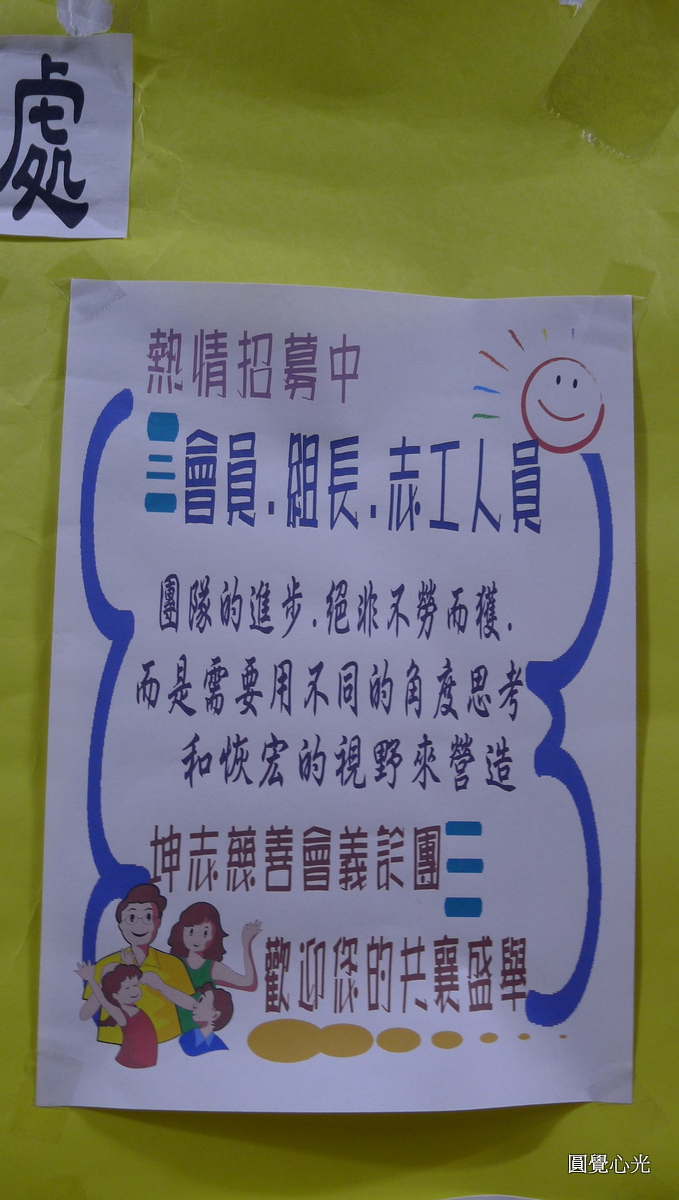 處
熱情招募中
會員.組長.志工人員
團隊的進步.絕非不勞而獲.
而是需要用不同的角度思考
和恢宏的視野來營造
坤志慈善會義診團
歡迎您的共襄盛舉
圓覺心光